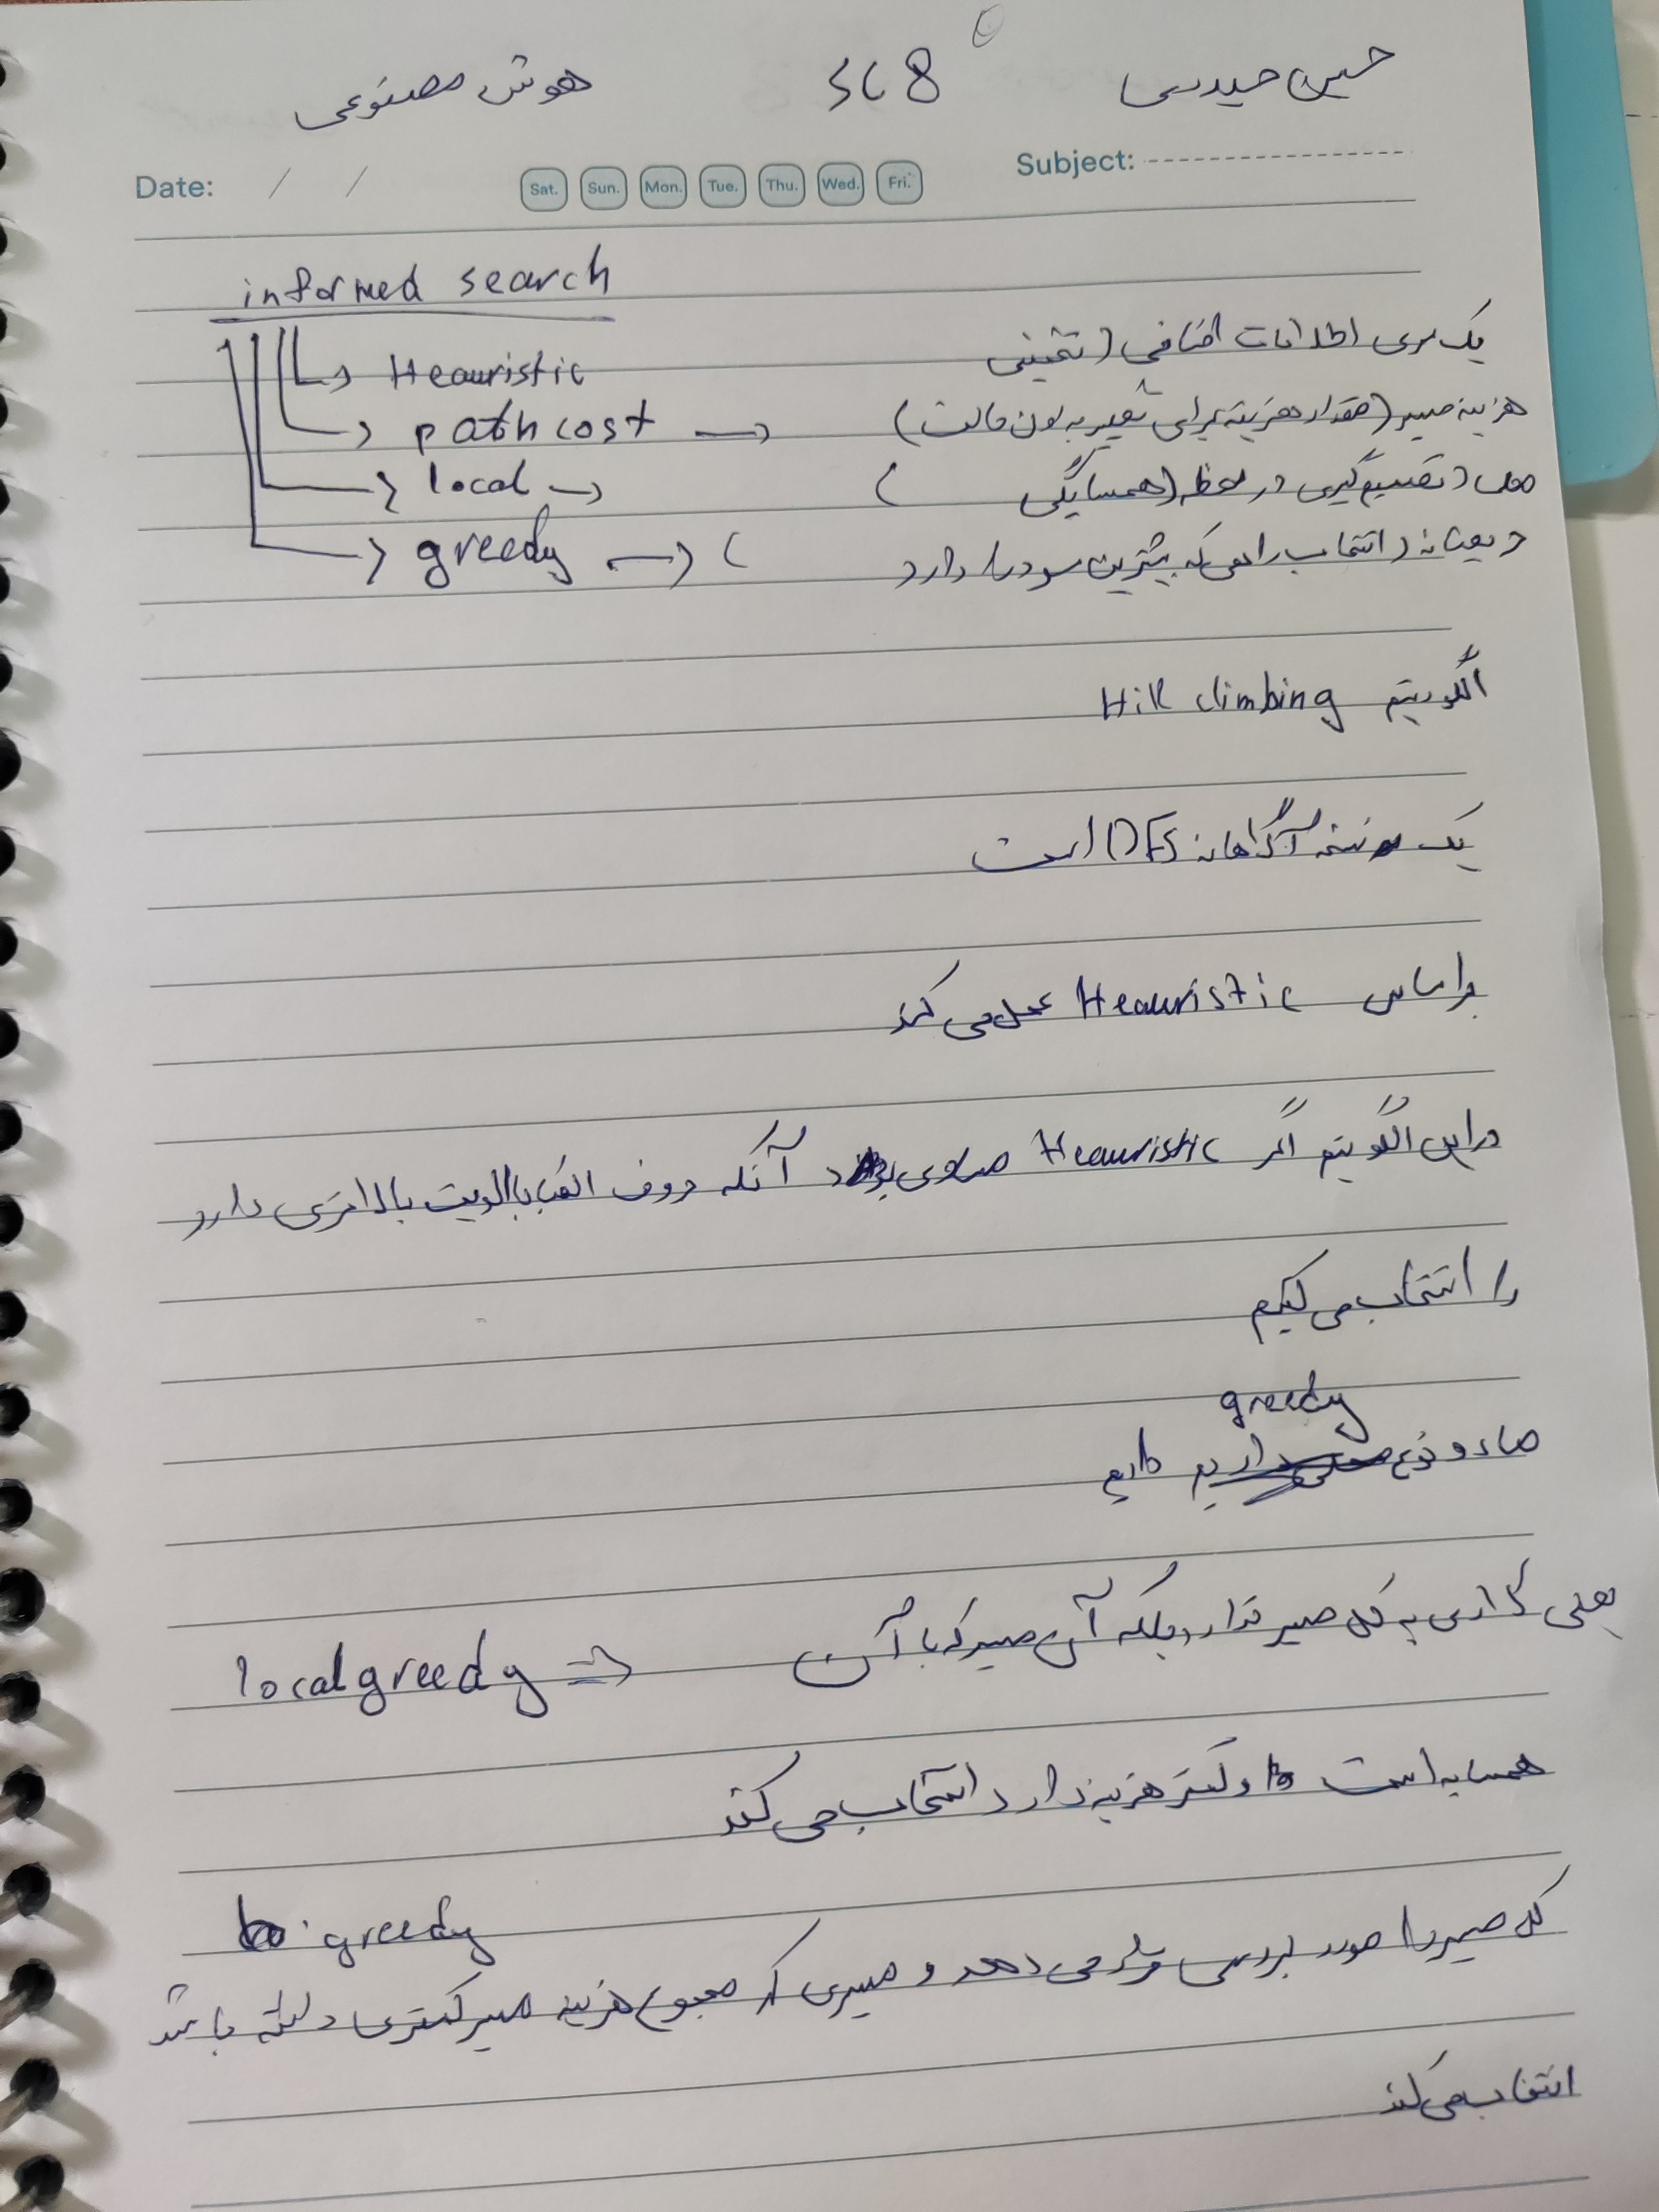 حسین حیدری SC8 هوش مصنوعی
Subject:
Date: / / Sat. Sun. Mon. Tue. Thu. Wed. Fri.
informed search
Heauristic یک سری اطلاعات اضافی (تخمینی
path cost → هزینه مسیر (مقدار هزینه برای تغییر به اون حالت)
local → محلی (تصمیم گیری در لحظه (همسایگی )
greedy → ( حریصانه (انتخاب راهی که بیشترین سود را دارد
الگوریتم Hill climbing
یک نسخه آگاهانه DFS است
براساس Heauristic عمل می کند
در این الگوریتم اگر Heauristic مساوی بود آنکه حروف الفبا با الویت بالاتری دارد
را انتخاب می کنیم
greedy
ما دو نوع داریم
local greedy ⇒ یعنی کاری به کل مسیر ندارد بلکه آن مسیر که با آن
همسایه است و کمتر هزینه دارد انتخاب می کند
greedy
کل مسیر را مورد بررسی قرار می دهد و مسیری که مجموع هزینه مسیر کمتری داشته باشد
انتخاب می کند